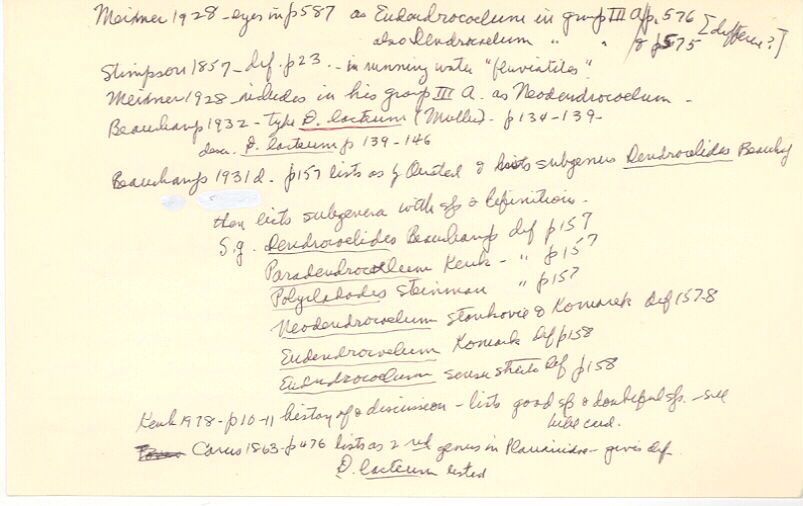 Meixner 1928 - eyes in p587 as Eudendrocoelum in group III A p. 576 [differ?]
also Dendrocoelum " " & p575
Stimpson 1857 - def. p23. - in running water "fluviatiles".
Meixner 1928 - includes in his group III A. as Neodendrocoelum -
Beauchamp 1932 - type D. lacteum (Muller) - p134-139 -
desc. D. lacteum p 139-146
Beauchamp 1931d. p157 lists as g Oersted & lists subgenus Dendrocelides Beauchamp
then lists subgenera with sps & definitions.
S.g. Dendrocoelides Beauchamp def p157
Paradendrocoelum Kenk - " p157
Polycladodes Steinman " p157
Neodendrocoelum Stankovic & Komarek def 157-8
Eudendrocoelum Komark def p158
Eudendrocoelum sensu stricto def p158
Kenk 1978 - p10-11 history of & discussion - lists good sps & doubtful sps. - see
card.
Carus 1863 - p476 lists as 2nd genus in Planariadae - gives def.
D. lacteum listed